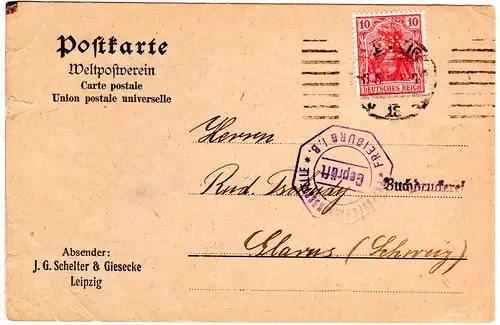 Postkarte
Weltpostverein
Carte postale
Union postale universelle
10 10
DEUTSCHES REICH
Herrn
FREIBURG i. B.
Geprüft
Rud. Tschudy
Buchdruckerei
Glarus (Schweiz)
Absender:
J. G. Schelter & Giesecke
Leipzig